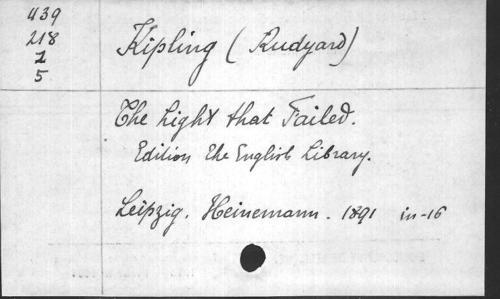 439
218
1
5
Kipling (Rudyard)
The Light that Failed.
Edition The English Library.
Leipzig. Heinemann. 1891 in-16